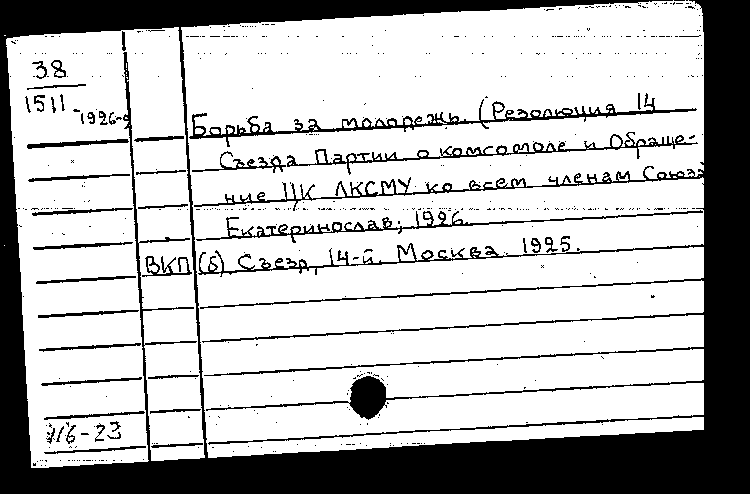 38
1511-1926-9
Борьба за молодежь. (Резолюция 14
Съезда Партии о комсомоле и Обраще-
ние ЦК ЛКСМУ ко всем членам Союза
Екатеринослав, 1926.
ВКП(б) Съезд, 14-й. Москва. 1925.
716-23